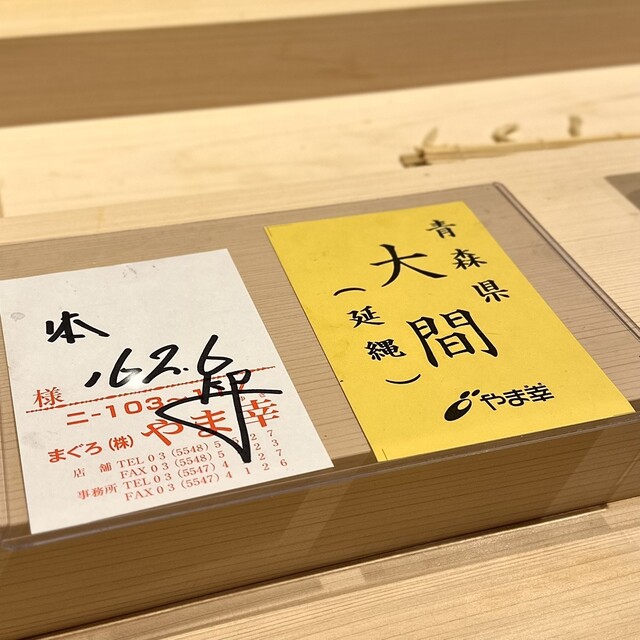 本
162.6
様
ニ-103~
まぐろ(株)やま幸
店舗 TEL 03 (5548) 5 27
FAX 03 (5548) 5 3
事務所 TEL 03 (5547) 4 1 2 7
FAX 03 (5547) 4 1 2 6
青森県
大間
(延縄)
やま幸